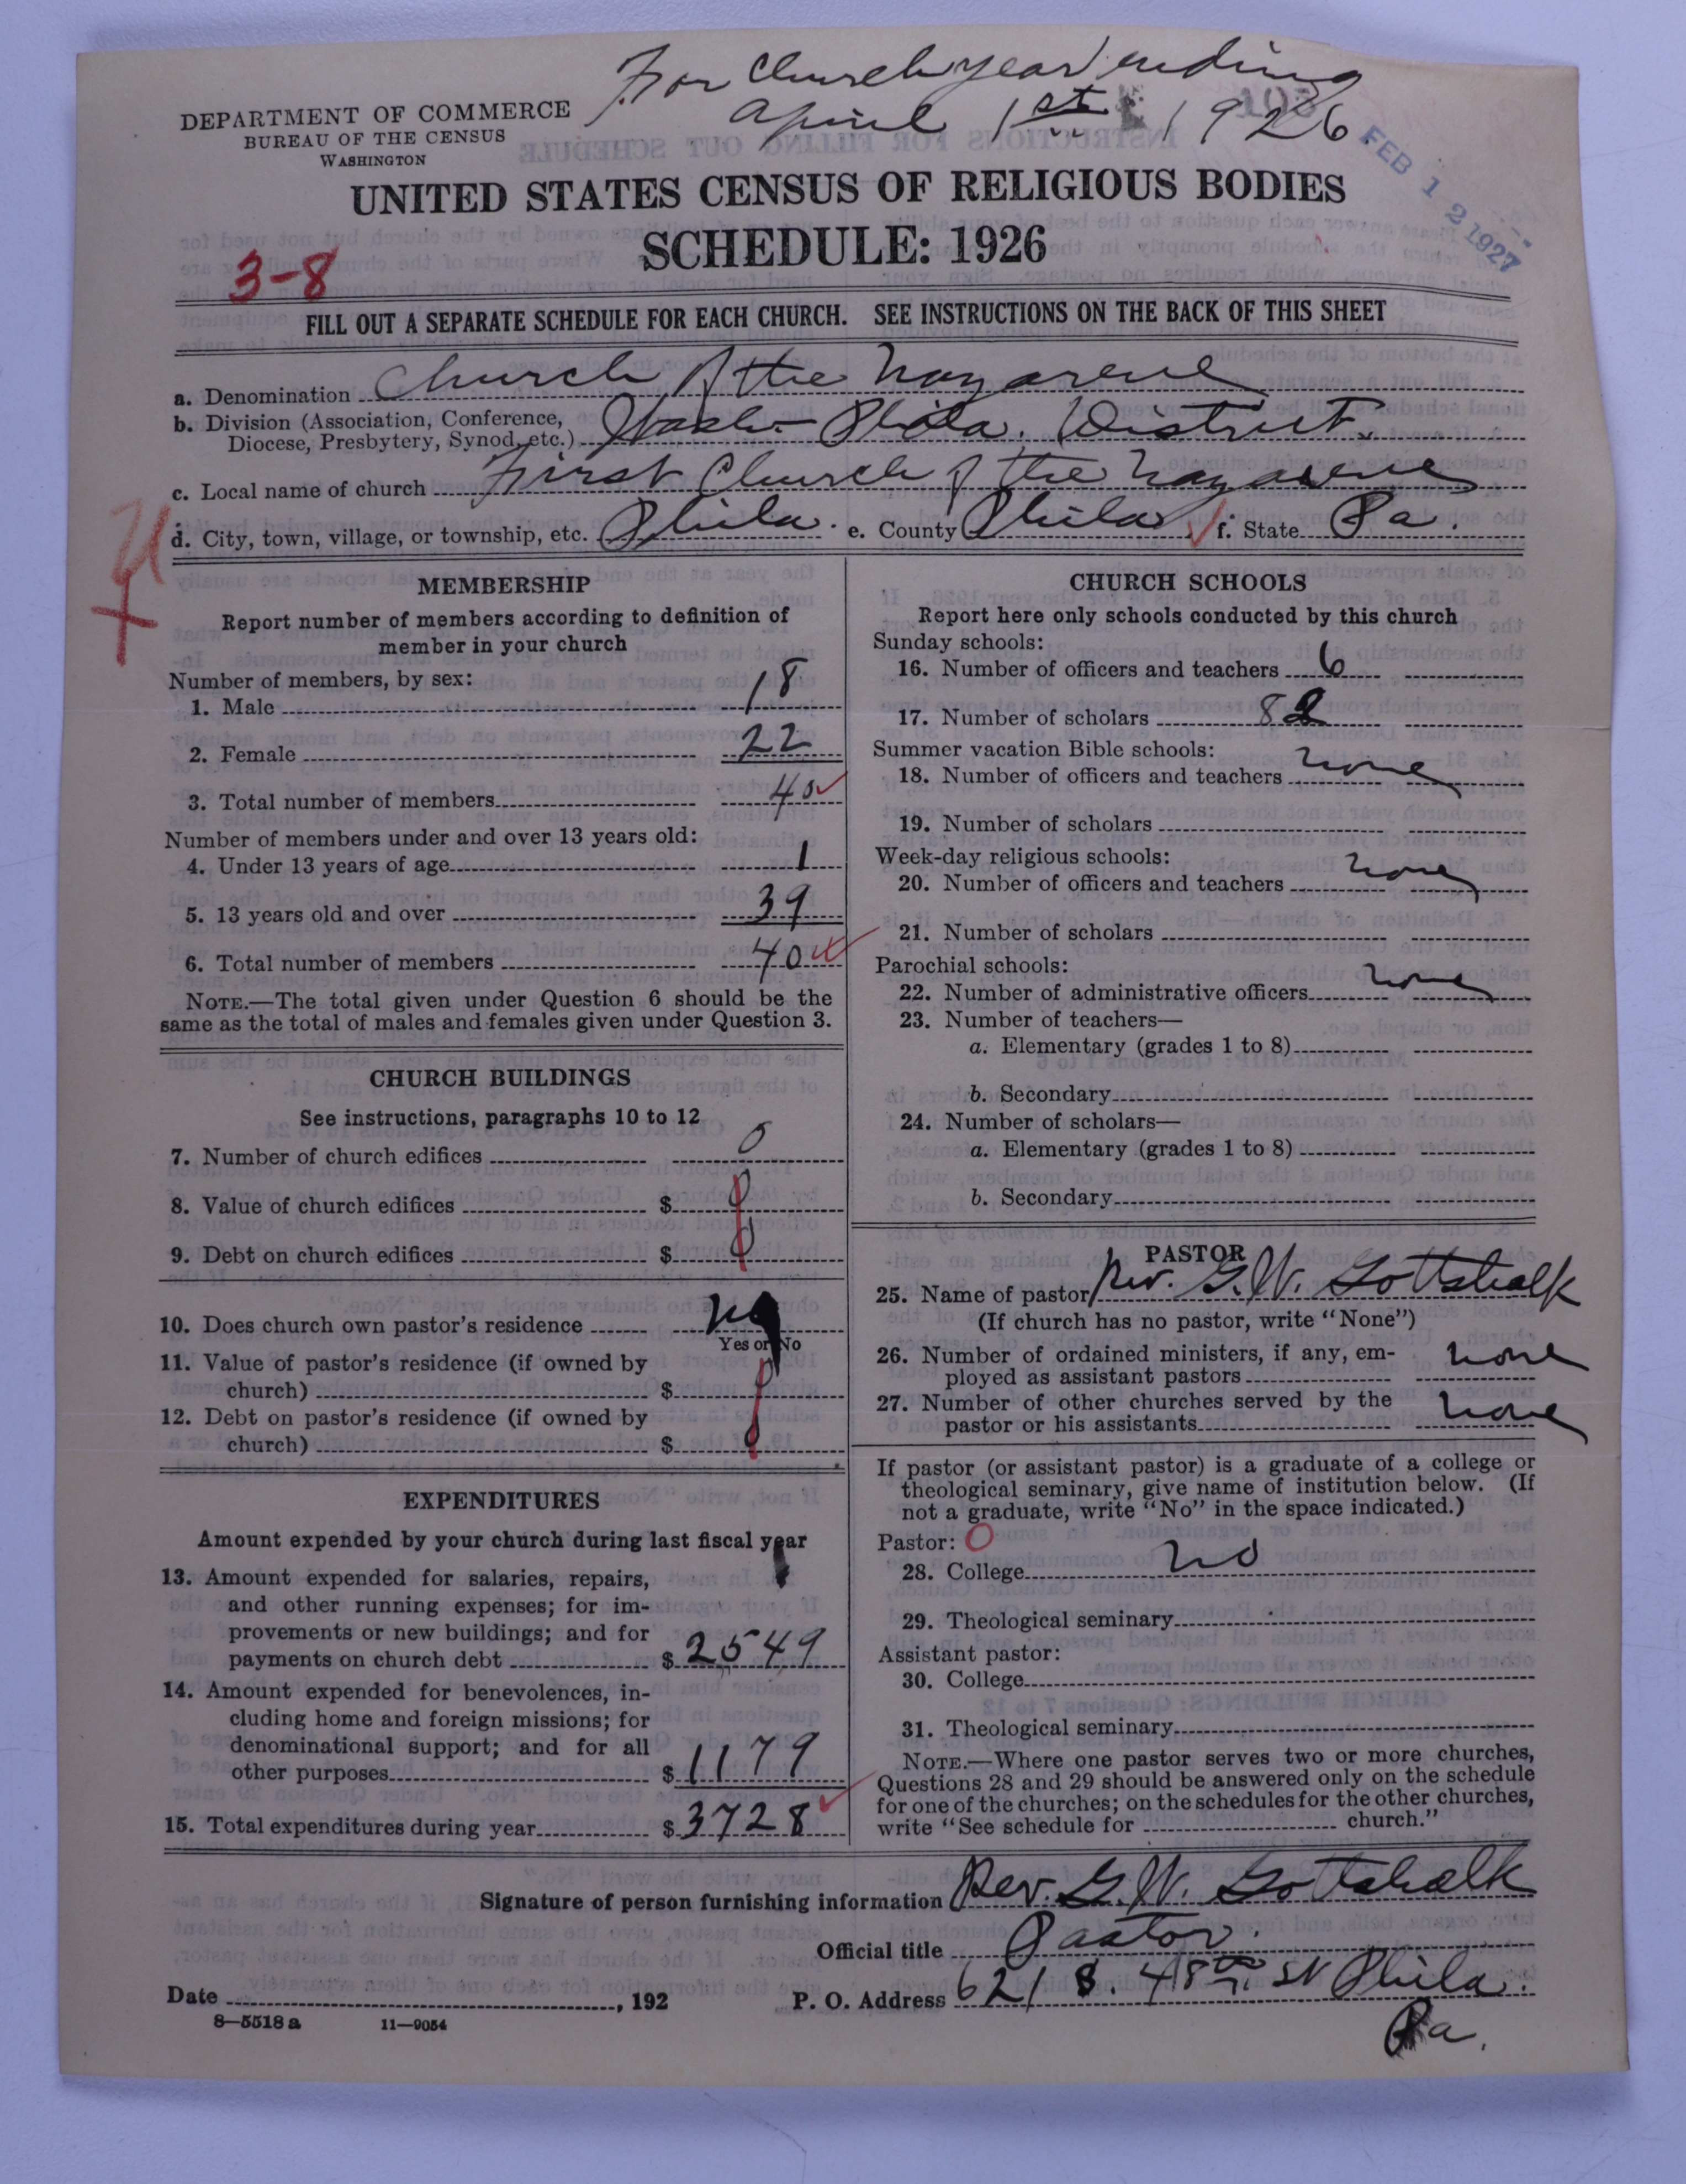 For Church year ending
April 1st 1926
DEPARTMENT OF COMMERCE
BUREAU OF THE CENSUS
WASHINGTON
FEB 12 1927
UNITED STATES CENSUS OF RELIGIOUS BODIES
SCHEDULE: 1926
3-8
FILL OUT A SEPARATE SCHEDULE FOR EACH CHURCH. SEE INSTRUCTIONS ON THE BACK OF THIS SHEET
a. Denomination Church of the Nazarene
b. Division (Association, Conference,
Diocese, Presbytery, Synod, etc.) Wash-Phila. District.
c. Local name of church First Church of the Nazarene
d. City, town, village, or township, etc. Phila. e. County Phila f. State Pa.
MEMBERSHIP
Report number of members according to definition of
member in your church
Number of members, by sex:
1. Male 18
2. Female 22
3. Total number of members 40
Number of members under and over 13 years old:
4. Under 13 years of age 1
5. 13 years old and over 39
6. Total number of members 40
NOTE.—The total given under Question 6 should be the
same as the total of males and females given under Question 3.
CHURCH BUILDINGS
See instructions, paragraphs 10 to 12
7. Number of church edifices 0
8. Value of church edifices $ 0
9. Debt on church edifices $ 0
10. Does church own pastor's residence no
Yes or No
11. Value of pastor's residence (if owned by
church) $ 0
12. Debt on pastor's residence (if owned by
church) $ 0
EXPENDITURES
Amount expended by your church during last fiscal year
13. Amount expended for salaries, repairs,
and other running expenses; for im-
provements or new buildings; and for
payments on church debt $ 2549
14. Amount expended for benevolences, in-
cluding home and foreign missions; for
denominational support; and for all
other purposes $ 1179
15. Total expenditures during year $ 3728
CHURCH SCHOOLS
Report here only schools conducted by this church
Sunday schools:
16. Number of officers and teachers 6
17. Number of scholars 82
Summer vacation Bible schools:
18. Number of officers and teachers none
19. Number of scholars
Week-day religious schools:
20. Number of officers and teachers none
21. Number of scholars
Parochial schools:
22. Number of administrative officers none
23. Number of teachers—
a. Elementary (grades 1 to 8)
b. Secondary
24. Number of scholars—
a. Elementary (grades 1 to 8)
b. Secondary
PASTOR
25. Name of pastor Rev. G. W. Gottshalk
(If church has no pastor, write "None")
26. Number of ordained ministers, if any, em-
ployed as assistant pastors none
27. Number of other churches served by the
pastor or his assistants none
If pastor (or assistant pastor) is a graduate of a college or
theological seminary, give name of institution below. (If
not a graduate, write "No" in the space indicated.)
Pastor: 0
28. College no
29. Theological seminary
Assistant pastor:
30. College
31. Theological seminary
NOTE.—Where one pastor serves two or more churches,
Questions 28 and 29 should be answered only on the schedule
for one of the churches; on the schedules for the other churches,
write "See schedule for church."
Signature of person furnishing information Rev. G. W. Gottshalk
Official title Pastor.
Date , 192 P. O. Address 621 S. 48th St Phila.
Pa.
8—5518 a 11—9054